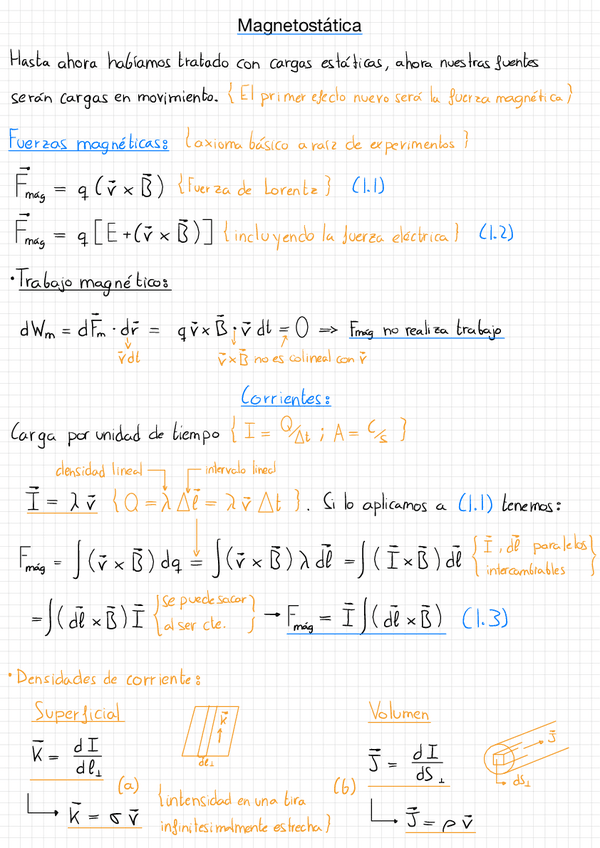 Magnetostática
Hasta ahora habíamos tratado con cargas estáticas, ahora nuestras fuentes
serán cargas en movimiento. {El primer efecto nuevo será la fuerza magnética}
Fuerzas magnéticas: {axioma básico a raíz de experimentos}
F⃗mág = q (v⃗ × B⃗) {Fuerza de Lorentz} (1.1)
F⃗mág = q [E + (v⃗ × B⃗)] {incluyendo la fuerza eléctrica} (1.2)
· Trabajo magnético:
dWm = dF⃗m · dr⃗ = q v⃗ × B⃗ · v⃗ dt = 0 ⇒ Fmág no realiza trabajo
v⃗dt
v⃗ × B⃗ no es colineal con v⃗
Corrientes:
Carga por unidad de tiempo {I = Q/Δt ; A = C/s}
densidad lineal
intervalo lineal
I⃗ = λ v⃗ {Q = λ Δl⃗ = λ v⃗ Δt}. Si lo aplicamos a (1.1) tenemos:
Fmág = ∫(v⃗ × B⃗) dq = ∫(v⃗ × B⃗) λ dl⃗ = ∫(I⃗ × B⃗) dl⃗ {I⃗, dl⃗ paralelos intercambiables}
= ∫(dl⃗ × B⃗) I⃗ {se puede sacar al ser cte.} → Fmág = I⃗ ∫(dl⃗ × B⃗) (1.3)
· Densidades de corriente:
Superficial
K⃗ = dI / dl⊥
K⃗ = σ v⃗
(a)
K⃗
dl⊥
{intensidad en una tira
infinitesimalmente estrecha}
Volumen
(b)
J⃗ = dI / dS⊥
J⃗ = ρ v⃗
J⃗
dS⊥